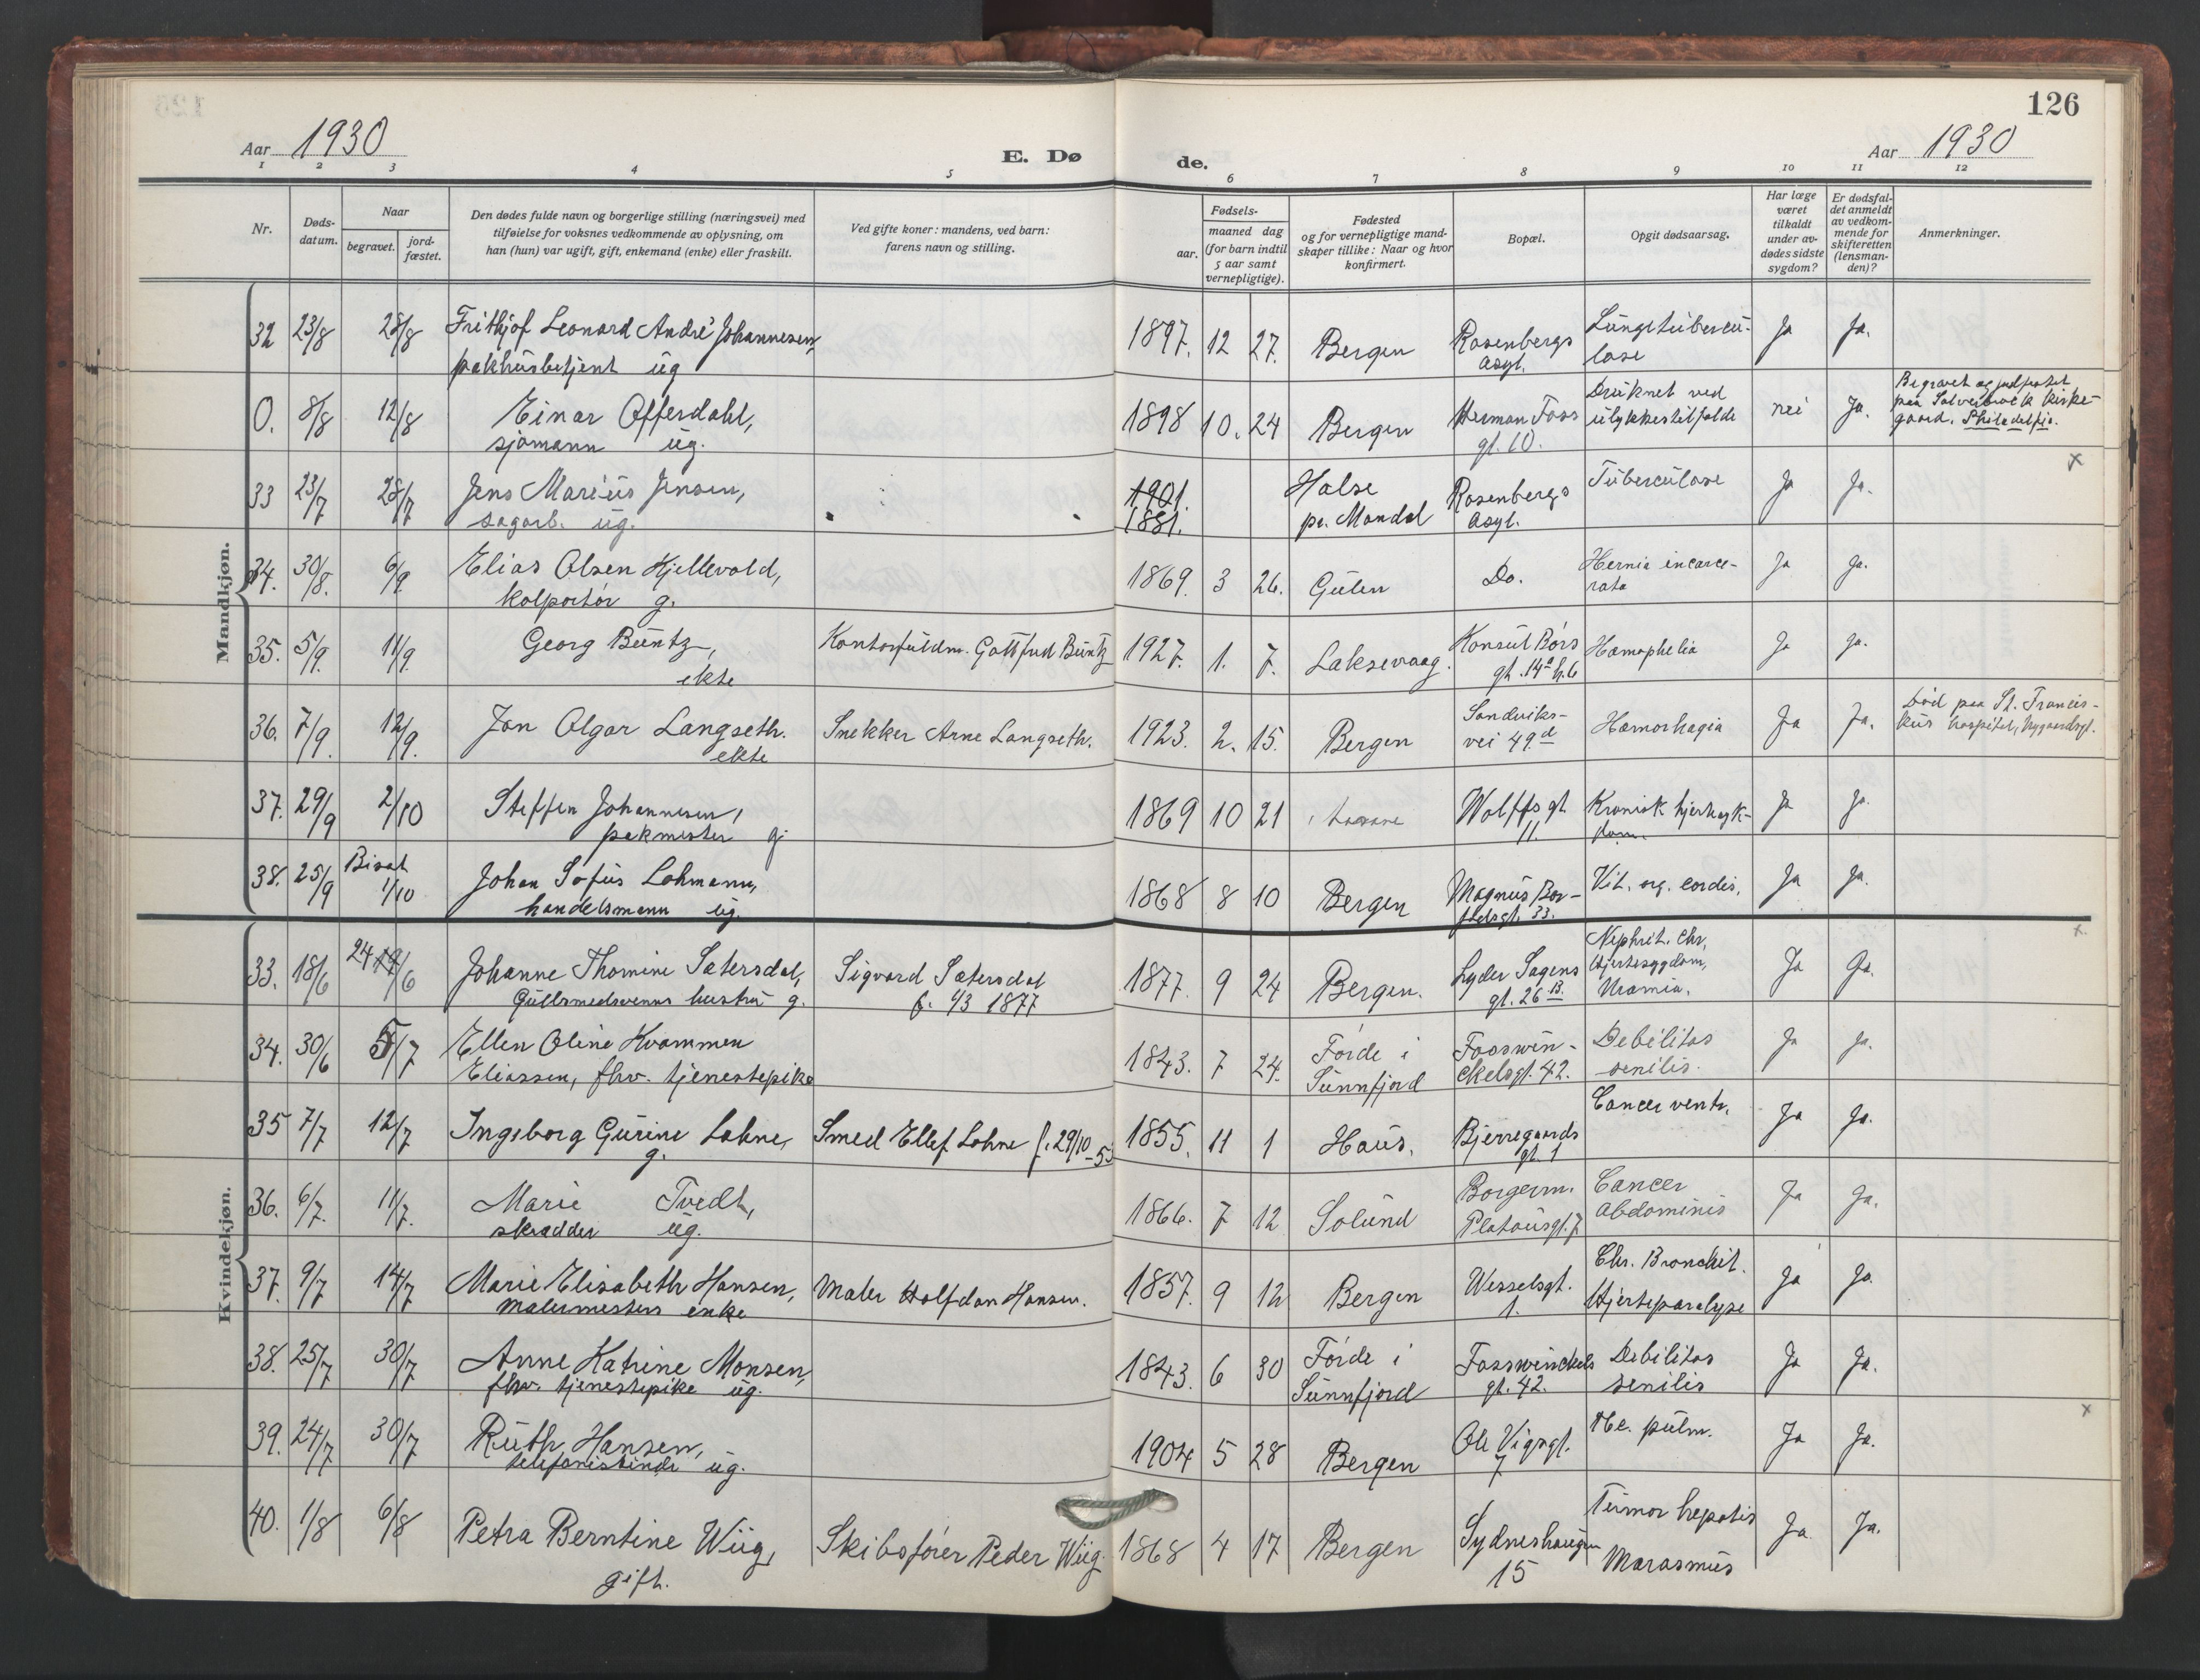 126
Aar 1930
E. Dø
de.
Aar 1930
1 2 3 4 5 6 7 8 9 10 11 12
Nr.
Døds-
datum.
Naar
begravet.
jord-
fæstet.
Den dødes fulde navn og borgerlige stilling (næringsvei) med
tilføielse for voksnes vedkommende av oplysning, om
han (hun) var ugift, gift, enkemand (enke) eller fraskilt.
Ved gifte koner: mandens, ved barn:
farens navn og stilling.
Fødsels-
aar.
maaned dag
(for barn indtil
5 aar samt
vernepligtige).
Fødested
og for vernepligtige mand-
skaper tillike: Naar og hvor
konfirmert.
Bopæl.
Opgit dødsaarsag.
Har læge
været
tilkaldt
under av-
dødes sidste
sygdom?
Er dødsfal-
det anmeldt
av vedkom-
mende for
skifteretten
(lensman-
den)?
Anmerkninger.
Mandkjøn.
32 23/8 28/8 Frithjof Leonard André Johannesen, 1897. 12 27. Bergen Rosenbergs Lungetubercu- Ja Ja.
pakhusbetjent ug asyl. lose
0. 8/8 12/8 Einar Offerdahl, 1898 10. 24 Bergen Herman Foss Druknet ved nei Ja. Begravet og jordfestet
sjømann ug. gt. 10. ulykkestilfelde paa kirke-
gaard. Philadelfia.
33 23/7 28/7 Jens Marius Jensen, 1901. Halse Rosenbergs Tuberculose Ja Ja. x
sagarb. ug. 1881. pr. Mandal Asyl.
34. 30/8. 6/9. Elias Olsen Kjellevold, 1869. 3 26. Gulen Do. Hernia incarce- Ja Ja.
kolportør g. rata
35. 5/9. 11/9. Georg Büntz, Kontorfuldm. Gottfred Büntz 1927. 1. 7. Laksevaag. Konsul Børs Hæmophelia Ja Ja.
ekte gt. 14a h.b
36. 7/9. 12/9. Jan Olgar Langseth. Snekker Arne Langseth. 1923. 2. 15. Bergen Sandviks- Hæmorhagia Ja Ja. Død paa St. Francis-
ekte vei 49d kus hospitel, Nygaardsgt.
37. 29/9 2/10 Steffen Johannesen, 1869 10 21 Wolffs gt. Kronisk hjertesyk- Ja Ja.
pakmester g. 11. dom.
38. 25/9 Bisat 1/10 Johan Sofus Lohmann, 1868 8 10 Bergen Magnus Bar- Vit. org. cordis. Ja Ja.
handelsmann ug. fotsgt. 33.
Kvindekjøn.
33. 18/6 24 19/6 Johanne Thomine Sætersdal, Sigvard Sætersdal 1877. 9 24 Bergen. Lyder Sagens Nephrit. chr, Ja Ja. x
Gullsmedsvenns hustru g. f. 4/3 1877 gt. 26 B. Hjertesygdom,
Uræmia.
34. 30/6 5/7 Ellen Oline Kvammen 1843. 7 24. Førde i Fosswin- Debilitas Ja Ja.
Eliassen, fhv. tjenestepike Sunnfjord ckelsgt. 42. senilis.
35 7/7 12/7 Ingeborg Gurine Lohne, Smed Ellef Lohne f. 29/10-53 1855. 11 1 Haus. Bjerregaards Cancer ventr. Ja Ja.
g. gt. 1
36. 6/7. 11/7. Marie Tvedt, 1866. 7 12 Solund Borgerm. Cancer Ja Ja.
skrædder ug. Platousgt. 7 abdominis
37. 9/7 14/7 Marie Elisabeth Hansen, Maler Halfdan Hansen. 1857. 9 12 Bergen Wesselsgt. Chr. Bronchit. Ja Ja.
Malermesters enke 1. Hjerteparalyse
38. 25/7 30/7 Anne Katrine Monsen, 1843. 6 30 Førde i Fosswinckels Debilitas Ja Ja.
fhv. tjenestepike ug. Sunnfjord gt. 42. senilis
39. 24/7 30/7 Ruth Hansen, 1904 5 28 Bergen Ole Vigsgt. Tbc. pulm. Ja Ja. x
telefonistinde ug. 7
40. 1/8 6/8 Petra Berntine Wiig, Skibsfører Peder Wiig. 1868 4 17 Bergen Sydneshaugen Tumor hepatis Ja Ja.
gift. 15 Marasmus